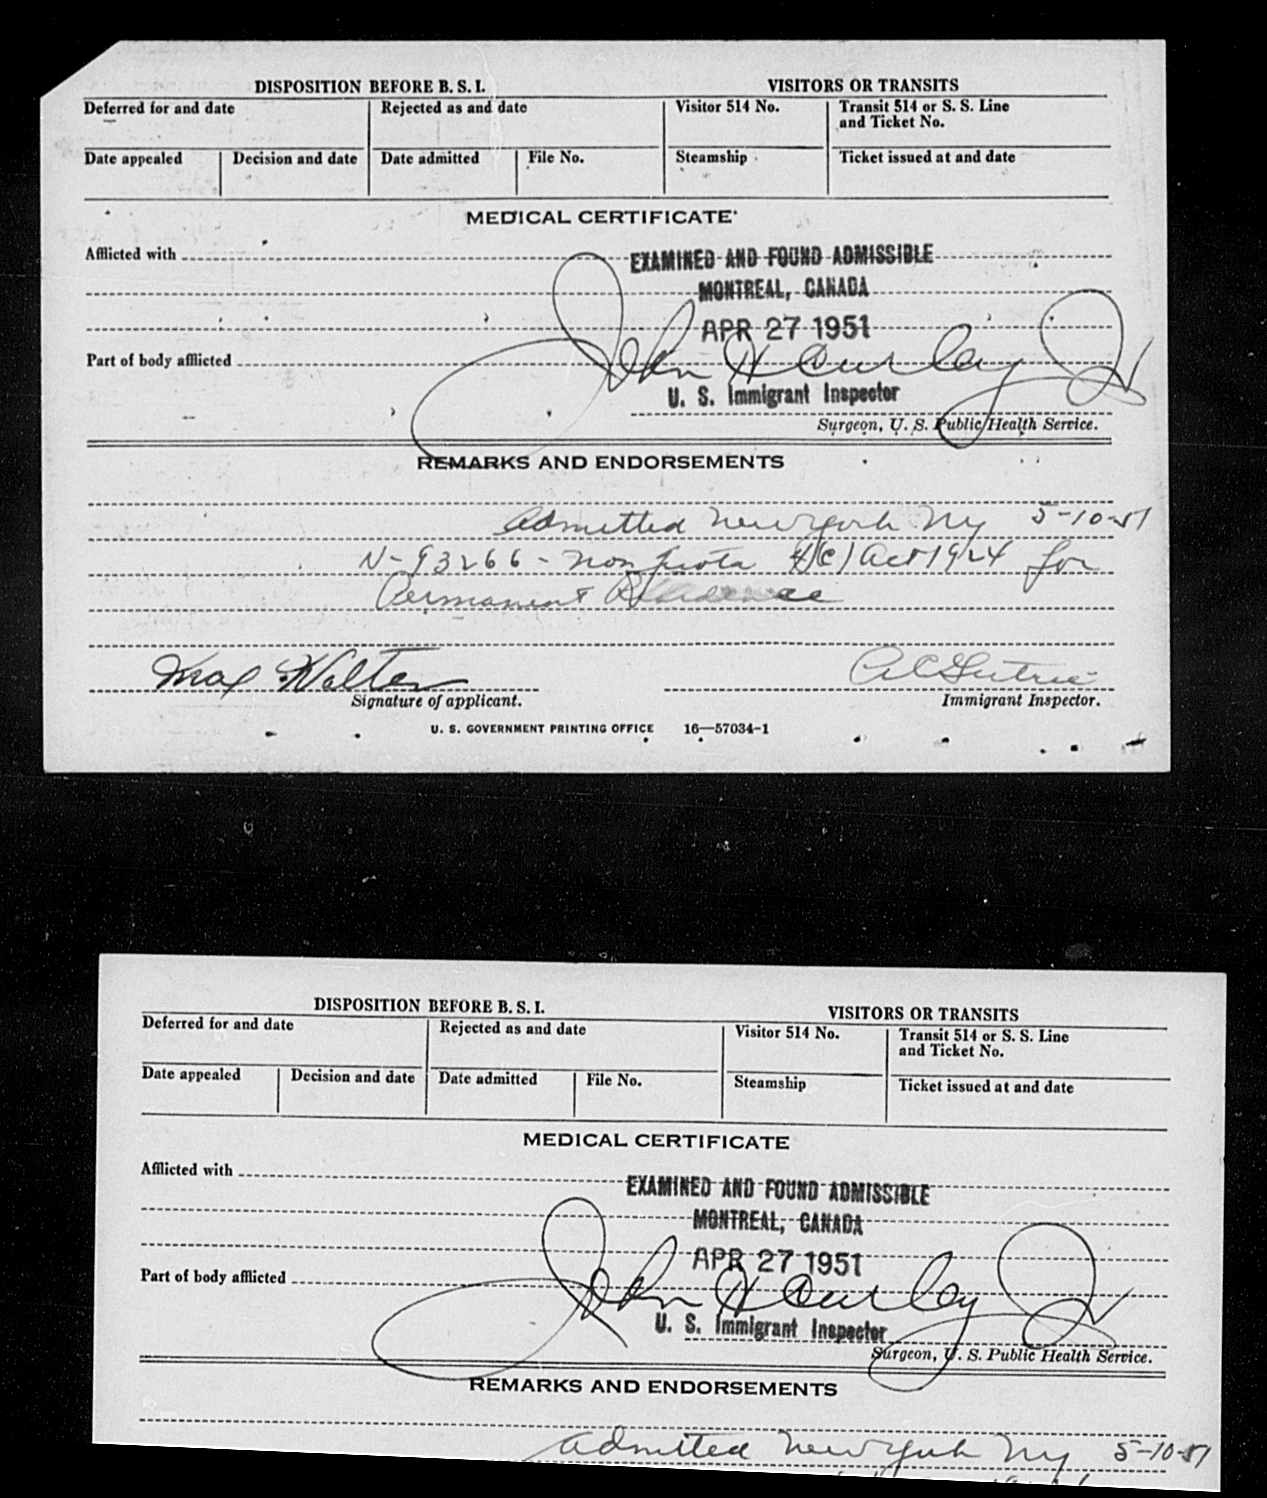 DISPOSITION BEFORE B. S. I. VISITORS OR TRANSITS
Deferred for and date Rejected as and date Visitor 514 No. Transit 514 or S. S. Line
and Ticket No.
Date appealed Decision and date Date admitted File No. Steamship Ticket issued at and date
MEDICAL CERTIFICATE
Afflicted with
EXAMINED AND FOUND ADMISSIBLE
MONTREAL, CANADA
APR 27 1951
Part of body afflicted
John H Jr
U. S. Immigrant Inspector
Surgeon, U. S. Public Health Service.
REMARKS AND ENDORSEMENTS
Admitted New York NY 5-10-51
V-93266 - Non quota 4(c) Act 1924 for
Permanent Residence
Max Walter
Signature of applicant. Immigrant Inspector.
U. S. GOVERNMENT PRINTING OFFICE 16—57034-1
DISPOSITION BEFORE B. S. I. VISITORS OR TRANSITS
Deferred for and date Rejected as and date Visitor 514 No. Transit 514 or S. S. Line
and Ticket No.
Date appealed Decision and date Date admitted File No. Steamship Ticket issued at and date
MEDICAL CERTIFICATE
Afflicted with
EXAMINED AND FOUND ADMISSIBLE
MONTREAL, CANADA
APR 27 1951
Part of body afflicted
John H Jr
U. S. Immigrant Inspector
Surgeon, U. S. Public Health Service.
REMARKS AND ENDORSEMENTS
Admitted New York NY 5-10-51